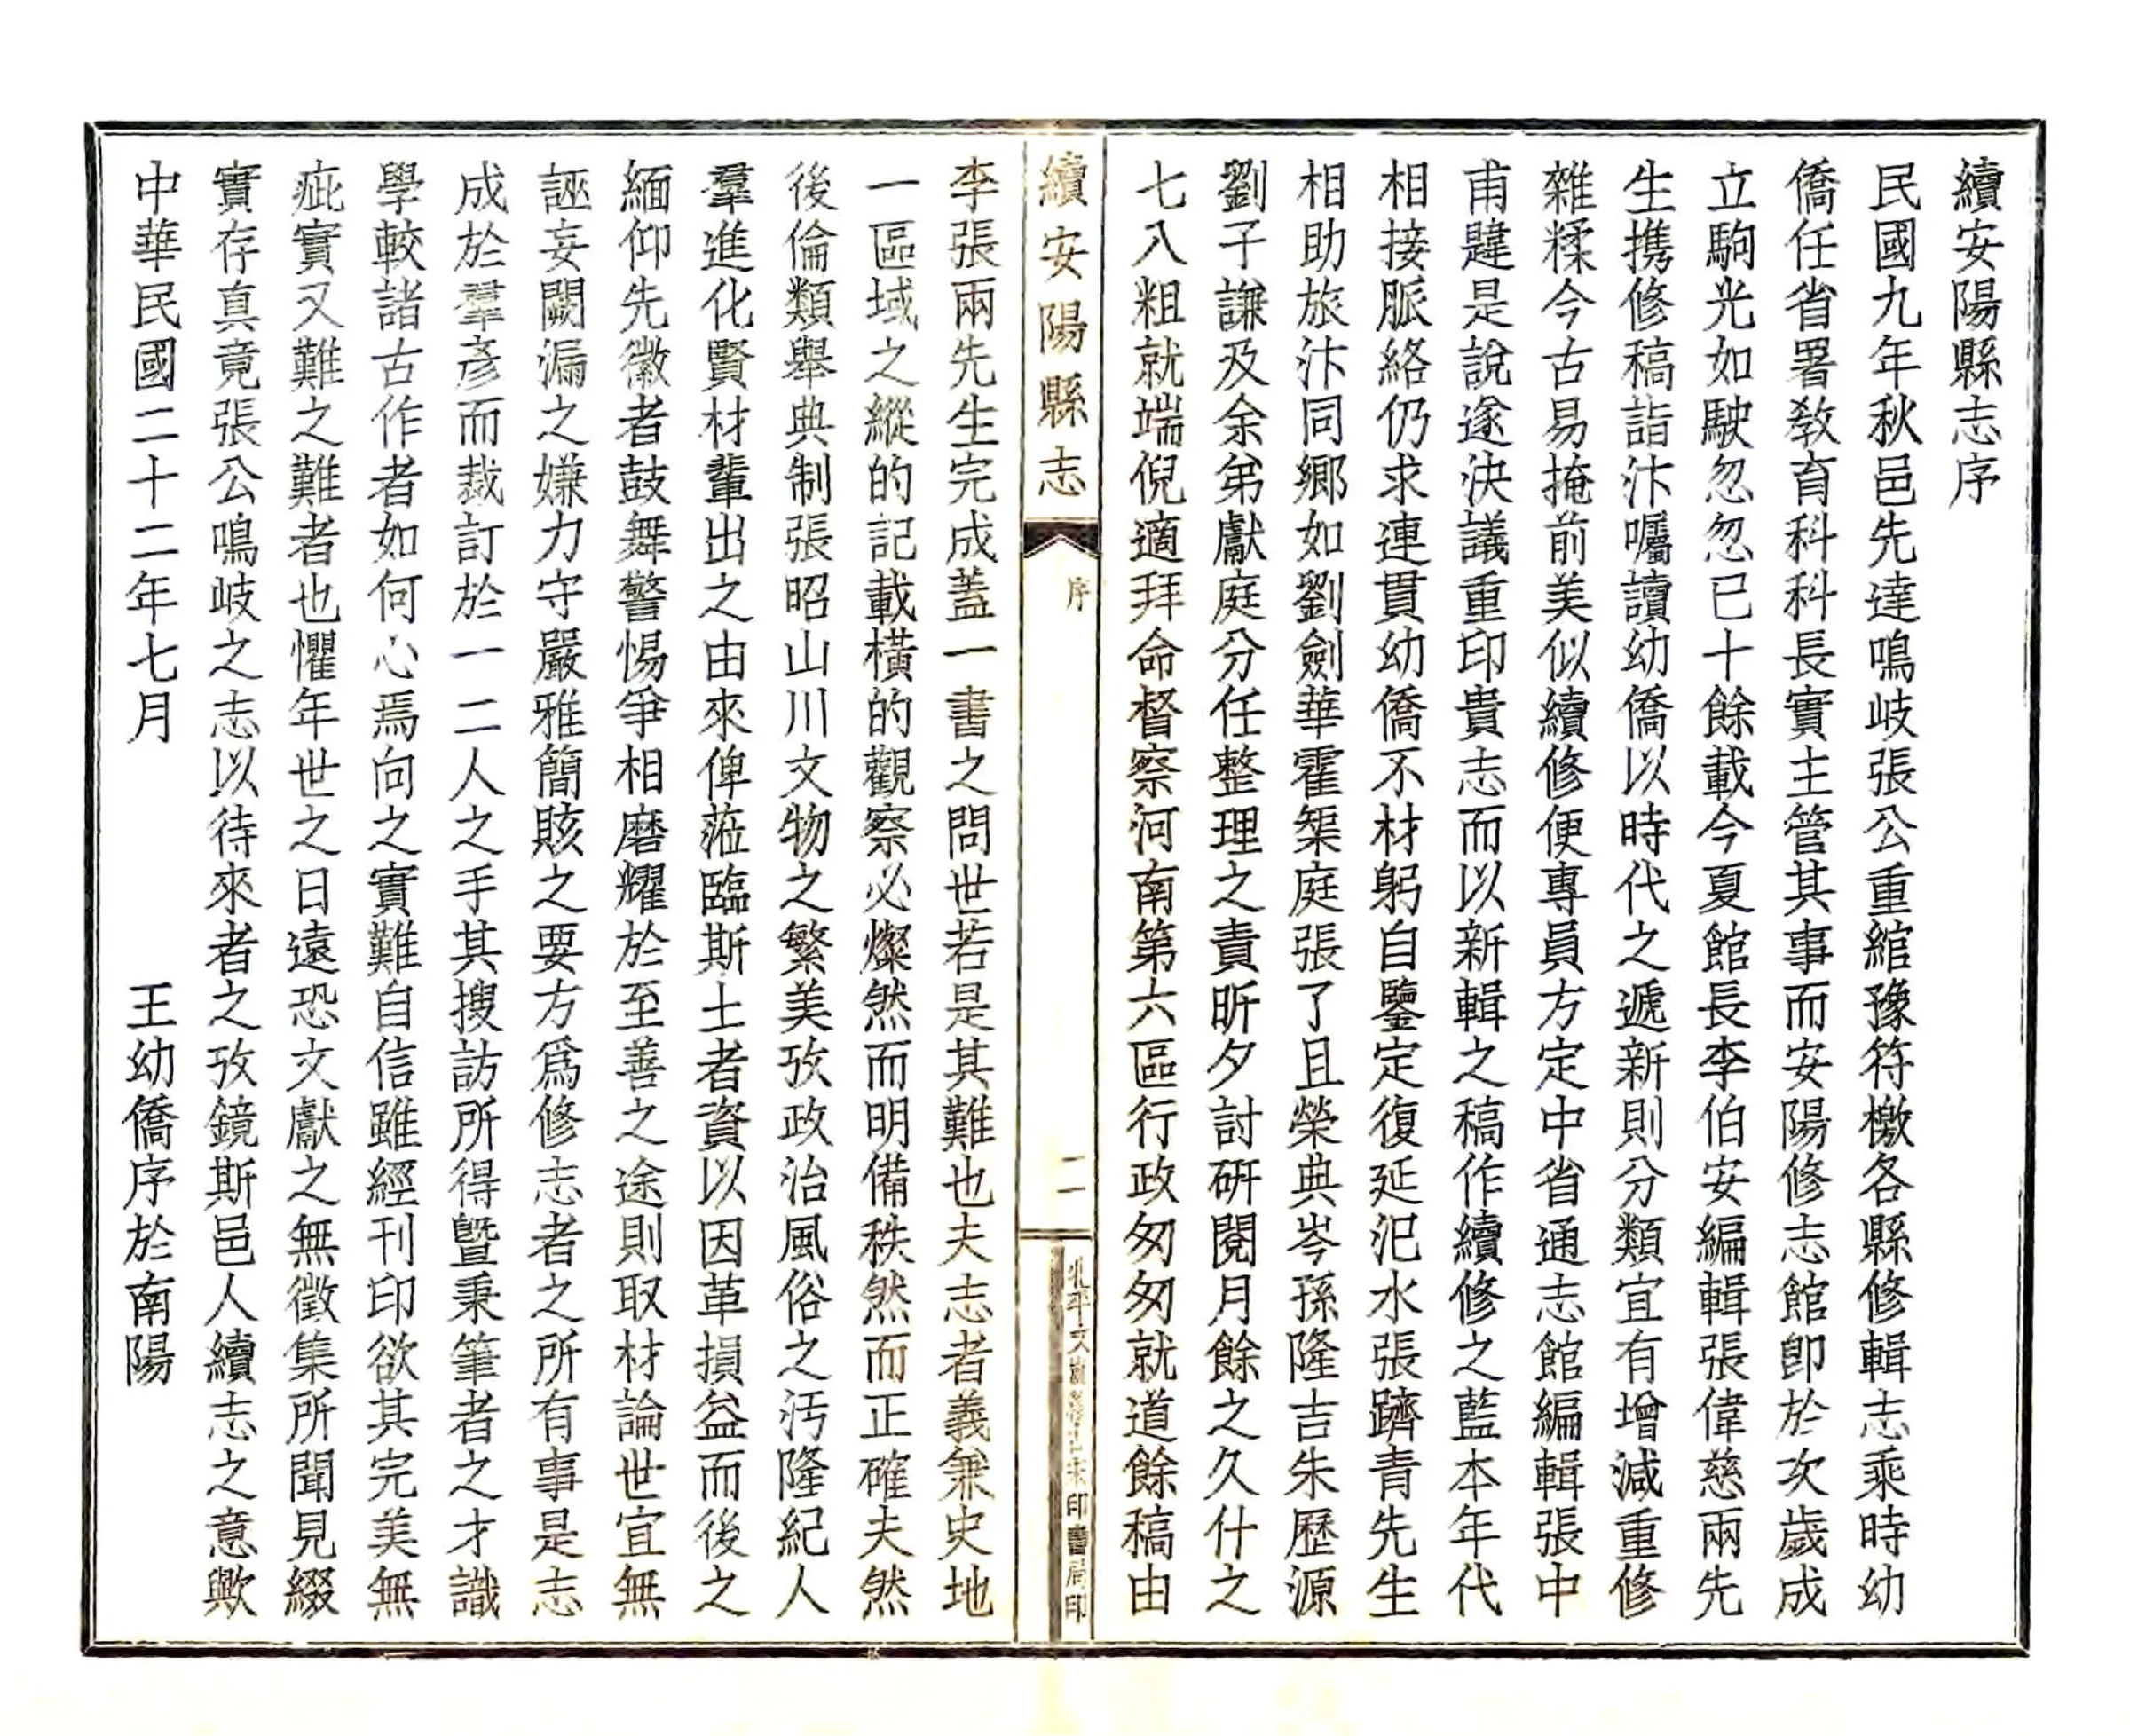 續安陽縣志序
民國九年秋邑先達鳴岐張公重綰豫符檄各縣修輯志乘時幼
僑任省署敎育科科長實主管其事而安陽修志館卽於次歲成
立駒光如駛忽忽已十餘載今夏館長李伯安編輯張偉慈兩先
生携修稿詣汴囑讀幼僑以時代之遞新則分類宜有增減重修
雜糅今古易掩前美似續修便專員方定中省通志館編輯張中
甫韙是說遂決議重印貴志而以新輯之稿作續修之藍本年代
相接脈絡仍求連貫幼僑不材躬自鑒定復延汜水張躋青先生
相助旅汴同鄉如劉劍華霍榘庭張了且榮典岑孫隆吉朱歷源
劉子謙及余弟獻庭分任整理之責昕夕討硏閱月餘之久什之
七八粗就端倪適拜命督察河南第六區行政匆匆就道餘稿由
續安陽縣志
序
二
北平文嵐簃古宋印書局印
李張兩先生完成蓋一書之問世若是其難也夫志者義兼史地
一區域之縱的記載橫的觀察必燦然而明備秩然而正確夫然
後倫類舉典制張昭山川文物之繁美攷政治風俗之汚隆紀人
羣進化賢材輩出之由來俾蒞臨斯土者資以因革損益而後之
緬仰先徽者鼓舞警惕爭相磨耀於至善之途則取材論世宜無
誣妄闕漏之嫌力守嚴雅簡賅之要方爲修志者之所有事是志
成於羣彥而裁訂於一二人之手其搜訪所得曁秉筆者之才識
學較諸古作者如何心焉向之實難自信雖經刊印欲其完美無
疵實又難之難者也懼年世之日遠恐文獻之無徵集所聞見綴
實存真竟張公鳴岐之志以待來者之攷鏡斯邑人續志之意歟
中華民國二十二年七月 王幼僑序於南陽